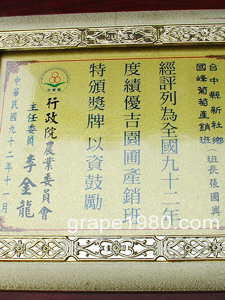 台中縣新社鄉
國峰葡萄產銷班(班長張國興
經評列為全國九十二年
度績優吉園圃產銷班
特頒獎牌以資鼓勵
行政院農業委員會
主任委員李金龍
中華民國九十二年十一月
grape1980.com